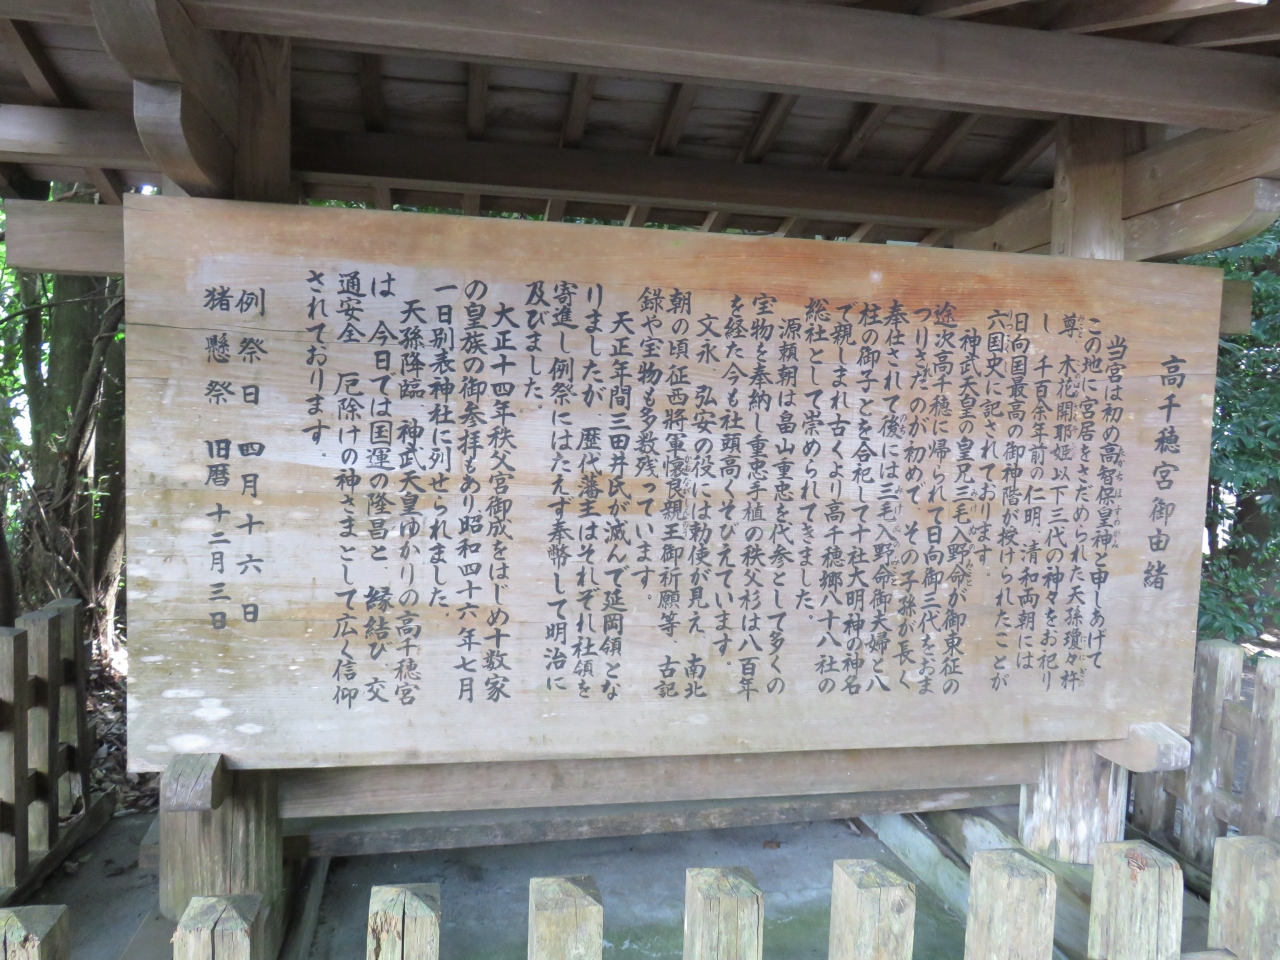 高千穂宮御由緒
当宮は初め高智保皇神と申しあげて
この地に宮居をさだめられた天孫瓊々杵
尊 木花開耶姫以下三代の神々をお祀り
し 千百余年前の仁明 清和両朝には
旧向国最高の御神階が授けられたことが
六国史に記されております。
神武天皇の皇兄三毛入野命が御東征の
途次高千穂に帰られて日向御三代をおま
つりされたのが初めで、その子孫が長く
奉仕されて後には三毛入野命御夫婦と八
柱の御子とを合祀して十社大明神の神名
で親しまれ古くより高千穂郷八十八社の
総社として崇められてきました。
源頼朝は畠山重忠を代参として多くの
宝物を奉納し重忠手植の秩父杉は八百年
を経た今も社頭高くそびえています。
文永、弘安の役には勅使が見え 南北
朝の頃征西將軍懐良親王御祈願等 古記
録や宝物も多数残っています。
天正年間三田井氏が滅んで延岡領とな
りましたが、歴代藩主はそれぞれ社領を
寄進し例祭にはたえず奉幣して明治に
及びました。
大正十四年秩父宮御成をはじめ十数家
の皇族の御参拝もあり昭和四十六年七月
一日別表神社に列せられました
天孫降臨 神武天皇ゆかりの高千穂宮
は 今日では国運の隆昌と、縁結び、交
通安全 厄除けの神さまとして広く信仰
されております。
例祭日 四月十六日
猪懸祭 旧暦 十二月三日